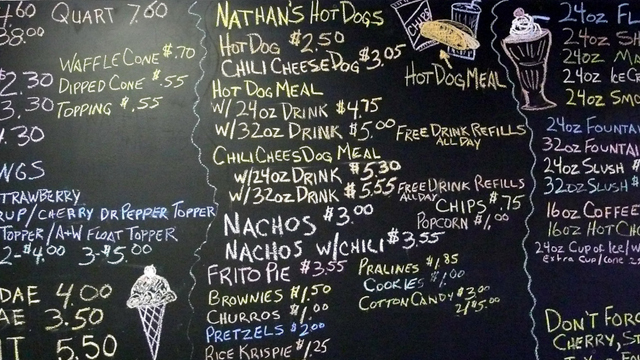 4.60 QUART 7.60
38.00
WAFFLE CONE $.70
DIPPED CONE $.55
TOPPING $.55
$2.30
3.30
4.30
NGS
TRAWBERRY
RUP/CHERRY DR PEPPER TOPPER
TOPPER/A+W FLOAT TOPPER
2-$4.00 3-$5.00
DAE 4.00
AE 3.50
IT 5.50
NATHAN'S HOT DOGS
HOT DOG $2.50
CHILI CHEESE DOG $3.05
HOT DOG MEAL
W/24OZ DRINK $4.75
W/32OZ DRINK $5.00 FREE DRINK REFILLS
ALL DAY
CHILI CHEES DOG MEAL
W/24OZ DRINK $5.30
W/32OZ DRINK $5.55 FREE DRINK REFILLS
ALL DAY
CHIPS $.75
NACHOS $3.00
POPCORN $1.00
NACHOS W/CHILI $3.55
FRITO PIE $3.55
BROWNIES $1.50
CHURROS $1.00
PRETZELS $2.00
RICE KRISPIE $1.25
PRALINES $1.85
COOKIES $1.00
COTTON CANDY $3.00
2/$5.00
CHIPS
HOT DOG MEAL
24OZ FL
24OZ SH
24OZ MA
24OZ ICE
24OZ SM
24OZ FOUNTAI
32OZ FOUNTAI
24OZ SLUSH $
32OZ SLUSH $
16OZ COFFEE
16OZ HOT CHO
24OZ CUP OF ICE/W
EXTRA CUP/CONE .25
DON'T FORG
CHERRY, S